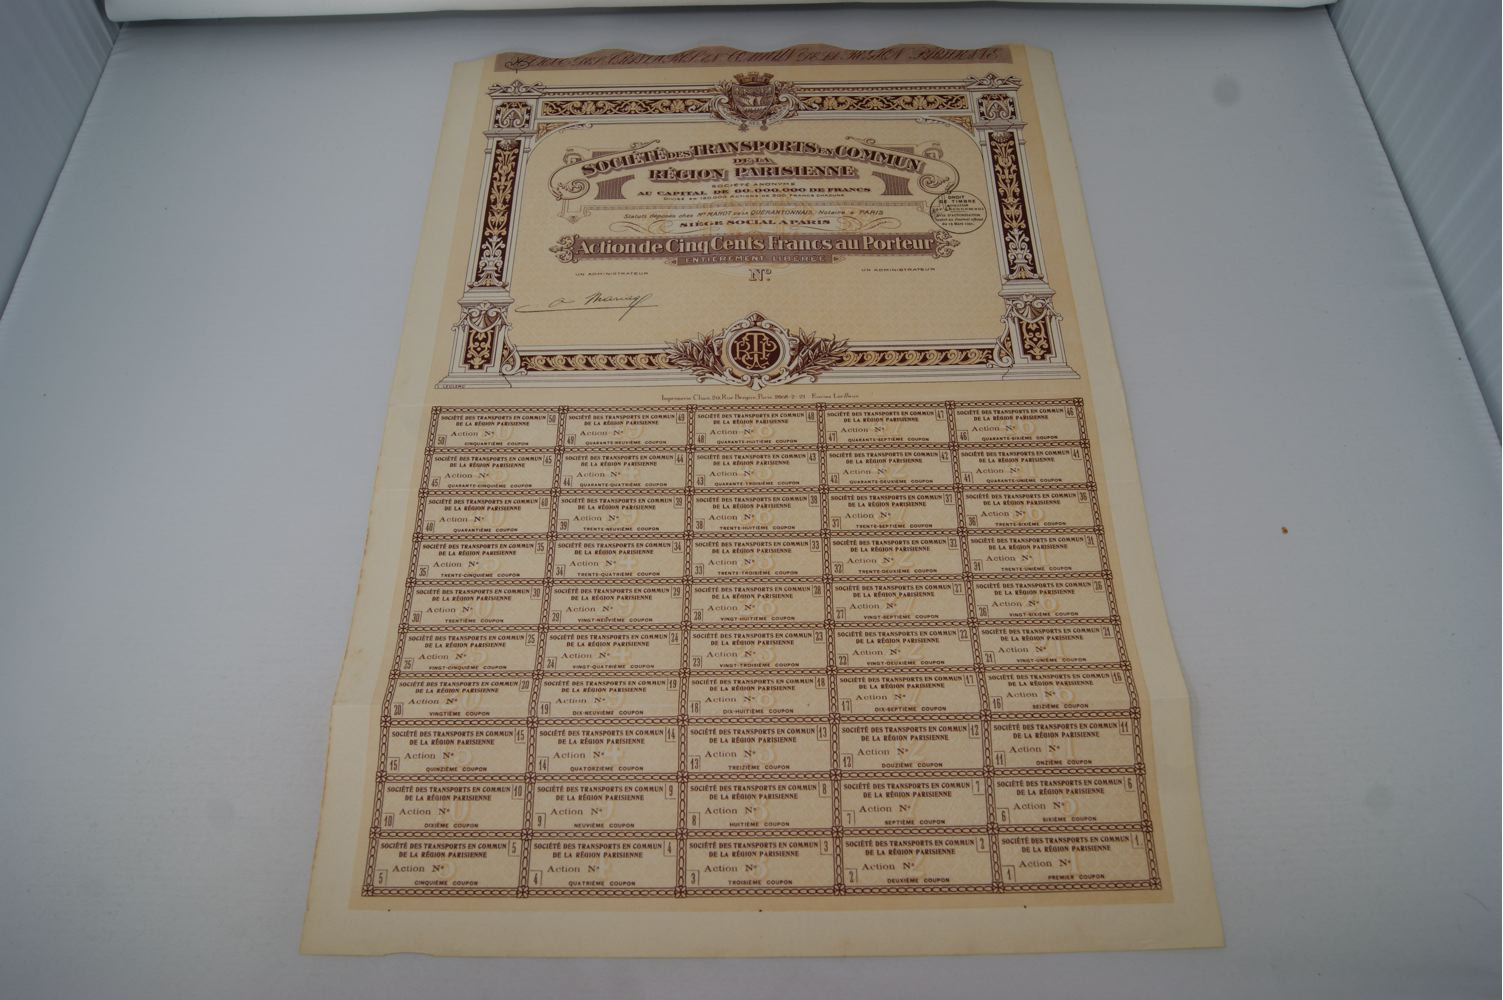 SOCIÉTÉ DES TRANSPORTS EN COMMUN
DE LA
RÉGION PARISIENNE
SOCIÉTÉ ANONYME
AU CAPITAL DE 60.000.000 DE FRANCS
DIVISÉ EN 120.000 ACTIONS DE 500 FRANCS CHACUNE
Statuts déposés chez Me MAHOT DE LA QUÉRANTONNAIS, Notaire à PARIS
SIÈGE SOCIAL A PARIS
DROIT
DE TIMBRE
Action de Cinq Cents Francs au Porteur
ENTIÈREMENT LIBÉRÉE
UN ADMINISTRATEUR
UN ADMINISTRATEUR
No
L. LECLERC
Imprimerie Chaix, 20, Rue Bergère, Paris
SOCIÉTÉ DES TRANSPORTS EN COMMUN 50 SOCIÉTÉ DES TRANSPORTS EN COMMUN 49 SOCIÉTÉ DES TRANSPORTS EN COMMUN 48 SOCIÉTÉ DES TRANSPORTS EN COMMUN 47 SOCIÉTÉ DES TRANSPORTS EN COMMUN 46
DE LA RÉGION PARISIENNE DE LA RÉGION PARISIENNE DE LA RÉGION PARISIENNE DE LA RÉGION PARISIENNE DE LA RÉGION PARISIENNE
Action No Action No Action No Action No Action No
50 CINQUANTIÈME COUPON 49 QUARANTE-NEUVIÈME COUPON 48 QUARANTE-HUITIÈME COUPON 47 QUARANTE-SEPTIÈME COUPON 46 QUARANTE-SIXIÈME COUPON
SOCIÉTÉ DES TRANSPORTS EN COMMUN 45 SOCIÉTÉ DES TRANSPORTS EN COMMUN 44 SOCIÉTÉ DES TRANSPORTS EN COMMUN 43 SOCIÉTÉ DES TRANSPORTS EN COMMUN 42 SOCIÉTÉ DES TRANSPORTS EN COMMUN 41
DE LA RÉGION PARISIENNE DE LA RÉGION PARISIENNE DE LA RÉGION PARISIENNE DE LA RÉGION PARISIENNE DE LA RÉGION PARISIENNE
Action No Action No Action No Action No Action No
45 QUARANTE-CINQUIÈME COUPON 44 QUARANTE-QUATRIÈME COUPON 43 QUARANTE-TROISIÈME COUPON 42 QUARANTE-DEUXIÈME COUPON 41 QUARANTE-UNIÈME COUPON
SOCIÉTÉ DES TRANSPORTS EN COMMUN 40 SOCIÉTÉ DES TRANSPORTS EN COMMUN 39 SOCIÉTÉ DES TRANSPORTS EN COMMUN 38 SOCIÉTÉ DES TRANSPORTS EN COMMUN 37 SOCIÉTÉ DES TRANSPORTS EN COMMUN 36
DE LA RÉGION PARISIENNE DE LA RÉGION PARISIENNE DE LA RÉGION PARISIENNE DE LA RÉGION PARISIENNE DE LA RÉGION PARISIENNE
Action No Action No Action No Action No Action No
40 QUARANTIÈME COUPON 39 TRENTE-NEUVIÈME COUPON 38 TRENTE-HUITIÈME COUPON 37 TRENTE-SEPTIÈME COUPON 36 TRENTE-SIXIÈME COUPON
SOCIÉTÉ DES TRANSPORTS EN COMMUN 35 SOCIÉTÉ DES TRANSPORTS EN COMMUN 34 SOCIÉTÉ DES TRANSPORTS EN COMMUN 33 SOCIÉTÉ DES TRANSPORTS EN COMMUN 32 SOCIÉTÉ DES TRANSPORTS EN COMMUN 31
DE LA RÉGION PARISIENNE DE LA RÉGION PARISIENNE DE LA RÉGION PARISIENNE DE LA RÉGION PARISIENNE DE LA RÉGION PARISIENNE
Action No Action No Action No Action No Action No
35 TRENTE-CINQUIÈME COUPON 34 TRENTE-QUATRIÈME COUPON 33 TRENTE-TROISIÈME COUPON 32 TRENTE-DEUXIÈME COUPON 31 TRENTE-UNIÈME COUPON
SOCIÉTÉ DES TRANSPORTS EN COMMUN 30 SOCIÉTÉ DES TRANSPORTS EN COMMUN 29 SOCIÉTÉ DES TRANSPORTS EN COMMUN 28 SOCIÉTÉ DES TRANSPORTS EN COMMUN 27 SOCIÉTÉ DES TRANSPORTS EN COMMUN 26
DE LA RÉGION PARISIENNE DE LA RÉGION PARISIENNE DE LA RÉGION PARISIENNE DE LA RÉGION PARISIENNE DE LA RÉGION PARISIENNE
Action No Action No Action No Action No Action No
30 TRENTIÈME COUPON 29 VINGT-NEUVIÈME COUPON 28 VINGT-HUITIÈME COUPON 27 VINGT-SEPTIÈME COUPON 26 VINGT-SIXIÈME COUPON
SOCIÉTÉ DES TRANSPORTS EN COMMUN 25 SOCIÉTÉ DES TRANSPORTS EN COMMUN 24 SOCIÉTÉ DES TRANSPORTS EN COMMUN 23 SOCIÉTÉ DES TRANSPORTS EN COMMUN 22 SOCIÉTÉ DES TRANSPORTS EN COMMUN 21
DE LA RÉGION PARISIENNE DE LA RÉGION PARISIENNE DE LA RÉGION PARISIENNE DE LA RÉGION PARISIENNE DE LA RÉGION PARISIENNE
Action No Action No Action No Action No Action No
25 VINGT-CINQUIÈME COUPON 24 VINGT-QUATRIÈME COUPON 23 VINGT-TROISIÈME COUPON 22 VINGT-DEUXIÈME COUPON 21 VINGT-UNIÈME COUPON
SOCIÉTÉ DES TRANSPORTS EN COMMUN 20 SOCIÉTÉ DES TRANSPORTS EN COMMUN 19 SOCIÉTÉ DES TRANSPORTS EN COMMUN 18 SOCIÉTÉ DES TRANSPORTS EN COMMUN 17 SOCIÉTÉ DES TRANSPORTS EN COMMUN 16
DE LA RÉGION PARISIENNE DE LA RÉGION PARISIENNE DE LA RÉGION PARISIENNE DE LA RÉGION PARISIENNE DE LA RÉGION PARISIENNE
Action No Action No Action No Action No Action No
20 VINGTIÈME COUPON 19 DIX-NEUVIÈME COUPON 18 DIX-HUITIÈME COUPON 17 DIX-SEPTIÈME COUPON 16 SEIZIÈME COUPON
SOCIÉTÉ DES TRANSPORTS EN COMMUN 15 SOCIÉTÉ DES TRANSPORTS EN COMMUN 14 SOCIÉTÉ DES TRANSPORTS EN COMMUN 13 SOCIÉTÉ DES TRANSPORTS EN COMMUN 12 SOCIÉTÉ DES TRANSPORTS EN COMMUN 11
DE LA RÉGION PARISIENNE DE LA RÉGION PARISIENNE DE LA RÉGION PARISIENNE DE LA RÉGION PARISIENNE DE LA RÉGION PARISIENNE
Action No Action No Action No Action No Action No
15 QUINZIÈME COUPON 14 QUATORZIÈME COUPON 13 TREIZIÈME COUPON 12 DOUZIÈME COUPON 11 ONZIÈME COUPON
SOCIÉTÉ DES TRANSPORTS EN COMMUN 10 SOCIÉTÉ DES TRANSPORTS EN COMMUN 9 SOCIÉTÉ DES TRANSPORTS EN COMMUN 8 SOCIÉTÉ DES TRANSPORTS EN COMMUN 7 SOCIÉTÉ DES TRANSPORTS EN COMMUN 6
DE LA RÉGION PARISIENNE DE LA RÉGION PARISIENNE DE LA RÉGION PARISIENNE DE LA RÉGION PARISIENNE DE LA RÉGION PARISIENNE
Action No Action No Action No Action No Action No
10 DIXIÈME COUPON 9 NEUVIÈME COUPON 8 HUITIÈME COUPON 7 SEPTIÈME COUPON 6 SIXIÈME COUPON
SOCIÉTÉ DES TRANSPORTS EN COMMUN 5 SOCIÉTÉ DES TRANSPORTS EN COMMUN 4 SOCIÉTÉ DES TRANSPORTS EN COMMUN 3 SOCIÉTÉ DES TRANSPORTS EN COMMUN 2 SOCIÉTÉ DES TRANSPORTS EN COMMUN 1
DE LA RÉGION PARISIENNE DE LA RÉGION PARISIENNE DE LA RÉGION PARISIENNE DE LA RÉGION PARISIENNE DE LA RÉGION PARISIENNE
Action No Action No Action No Action No Action No
5 CINQUIÈME COUPON 4 QUATRIÈME COUPON 3 TROISIÈME COUPON 2 DEUXIÈME COUPON 1 PREMIER COUPON